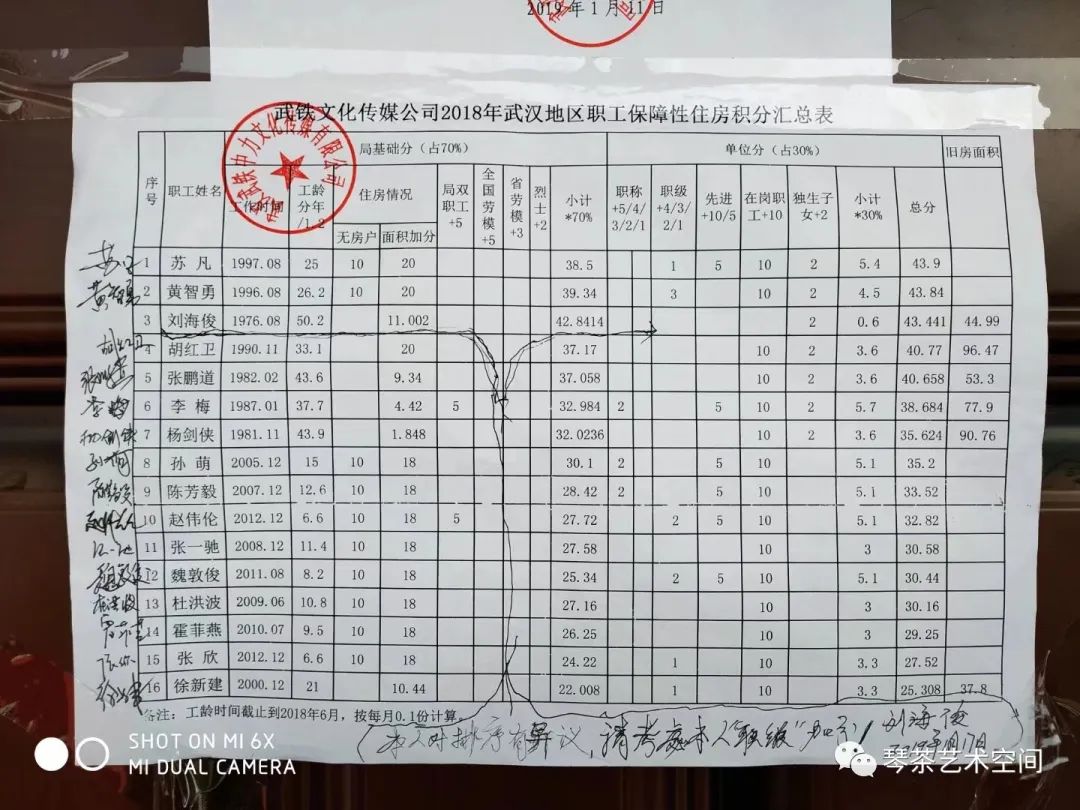 2019年1月11日
武铁文化传媒公司2018年武汉地区职工保障性住房积分汇总表
序号 职工姓名 工作时间 工龄分年/1.2 局基础分（占70%） 住房情况 无房户 面积加分 局双职工+5 全国劳模+5 省劳模+3 烈士+2 小计*70% 单位分（占30%） 职称+5/4/3/2/1 职级+4/3/2/1 先进+10/5 在岗职工+10 独生子女+2 小计*30% 总分 旧房面积
1 苏凡 1997.08 25 10 20 38.5 1 5 10 2 5.4 43.9
2 黄智勇 1996.08 26.2 10 20 39.34 3 10 2 4.5 43.84
3 刘海俊 1976.08 50.2 11.002 42.8414 2 0.6 43.441 44.99
4 胡红卫 1990.11 33.1 20 37.17 10 2 3.6 40.77 96.47
5 张鹏道 1982.02 43.6 9.34 37.058 10 2 3.6 40.658 53.3
6 李梅 1987.01 37.7 4.42 5 32.984 2 5 10 2 5.7 38.684 77.9
7 杨剑侠 1981.11 43.9 1.848 32.0236 10 2 3.6 35.624 90.76
8 孙萌 2005.12 15 10 18 30.1 2 5 10 5.1 35.2
9 陈芳毅 2007.12 12.6 10 18 28.42 2 5 10 5.1 33.52
10 赵伟伦 2012.12 6.6 10 18 5 27.72 2 5 10 5.1 32.82
11 张一驰 2008.12 11.4 10 18 27.58 10 3 30.58
12 魏敦俊 2011.08 8.2 10 18 25.34 2 5 10 5.1 30.44
13 杜洪波 2009.06 10.8 10 18 27.16 10 3 30.16
14 霍菲燕 2010.07 9.5 10 18 26.25 10 3 29.25
15 张欣 2012.12 6.6 10 18 24.22 1 10 3.3 27.52
16 徐新建 2000.12 21 10.44 22.008 1 10 3.3 25.308 37.8
备注：工龄时间截止到2018年6月，按每月0.1份计算。
本人对排序有异议，请考虑本人职级"加分" 刘海俊
SHOT ON MI 6X
MI DUAL CAMERA
琴茶艺术空间